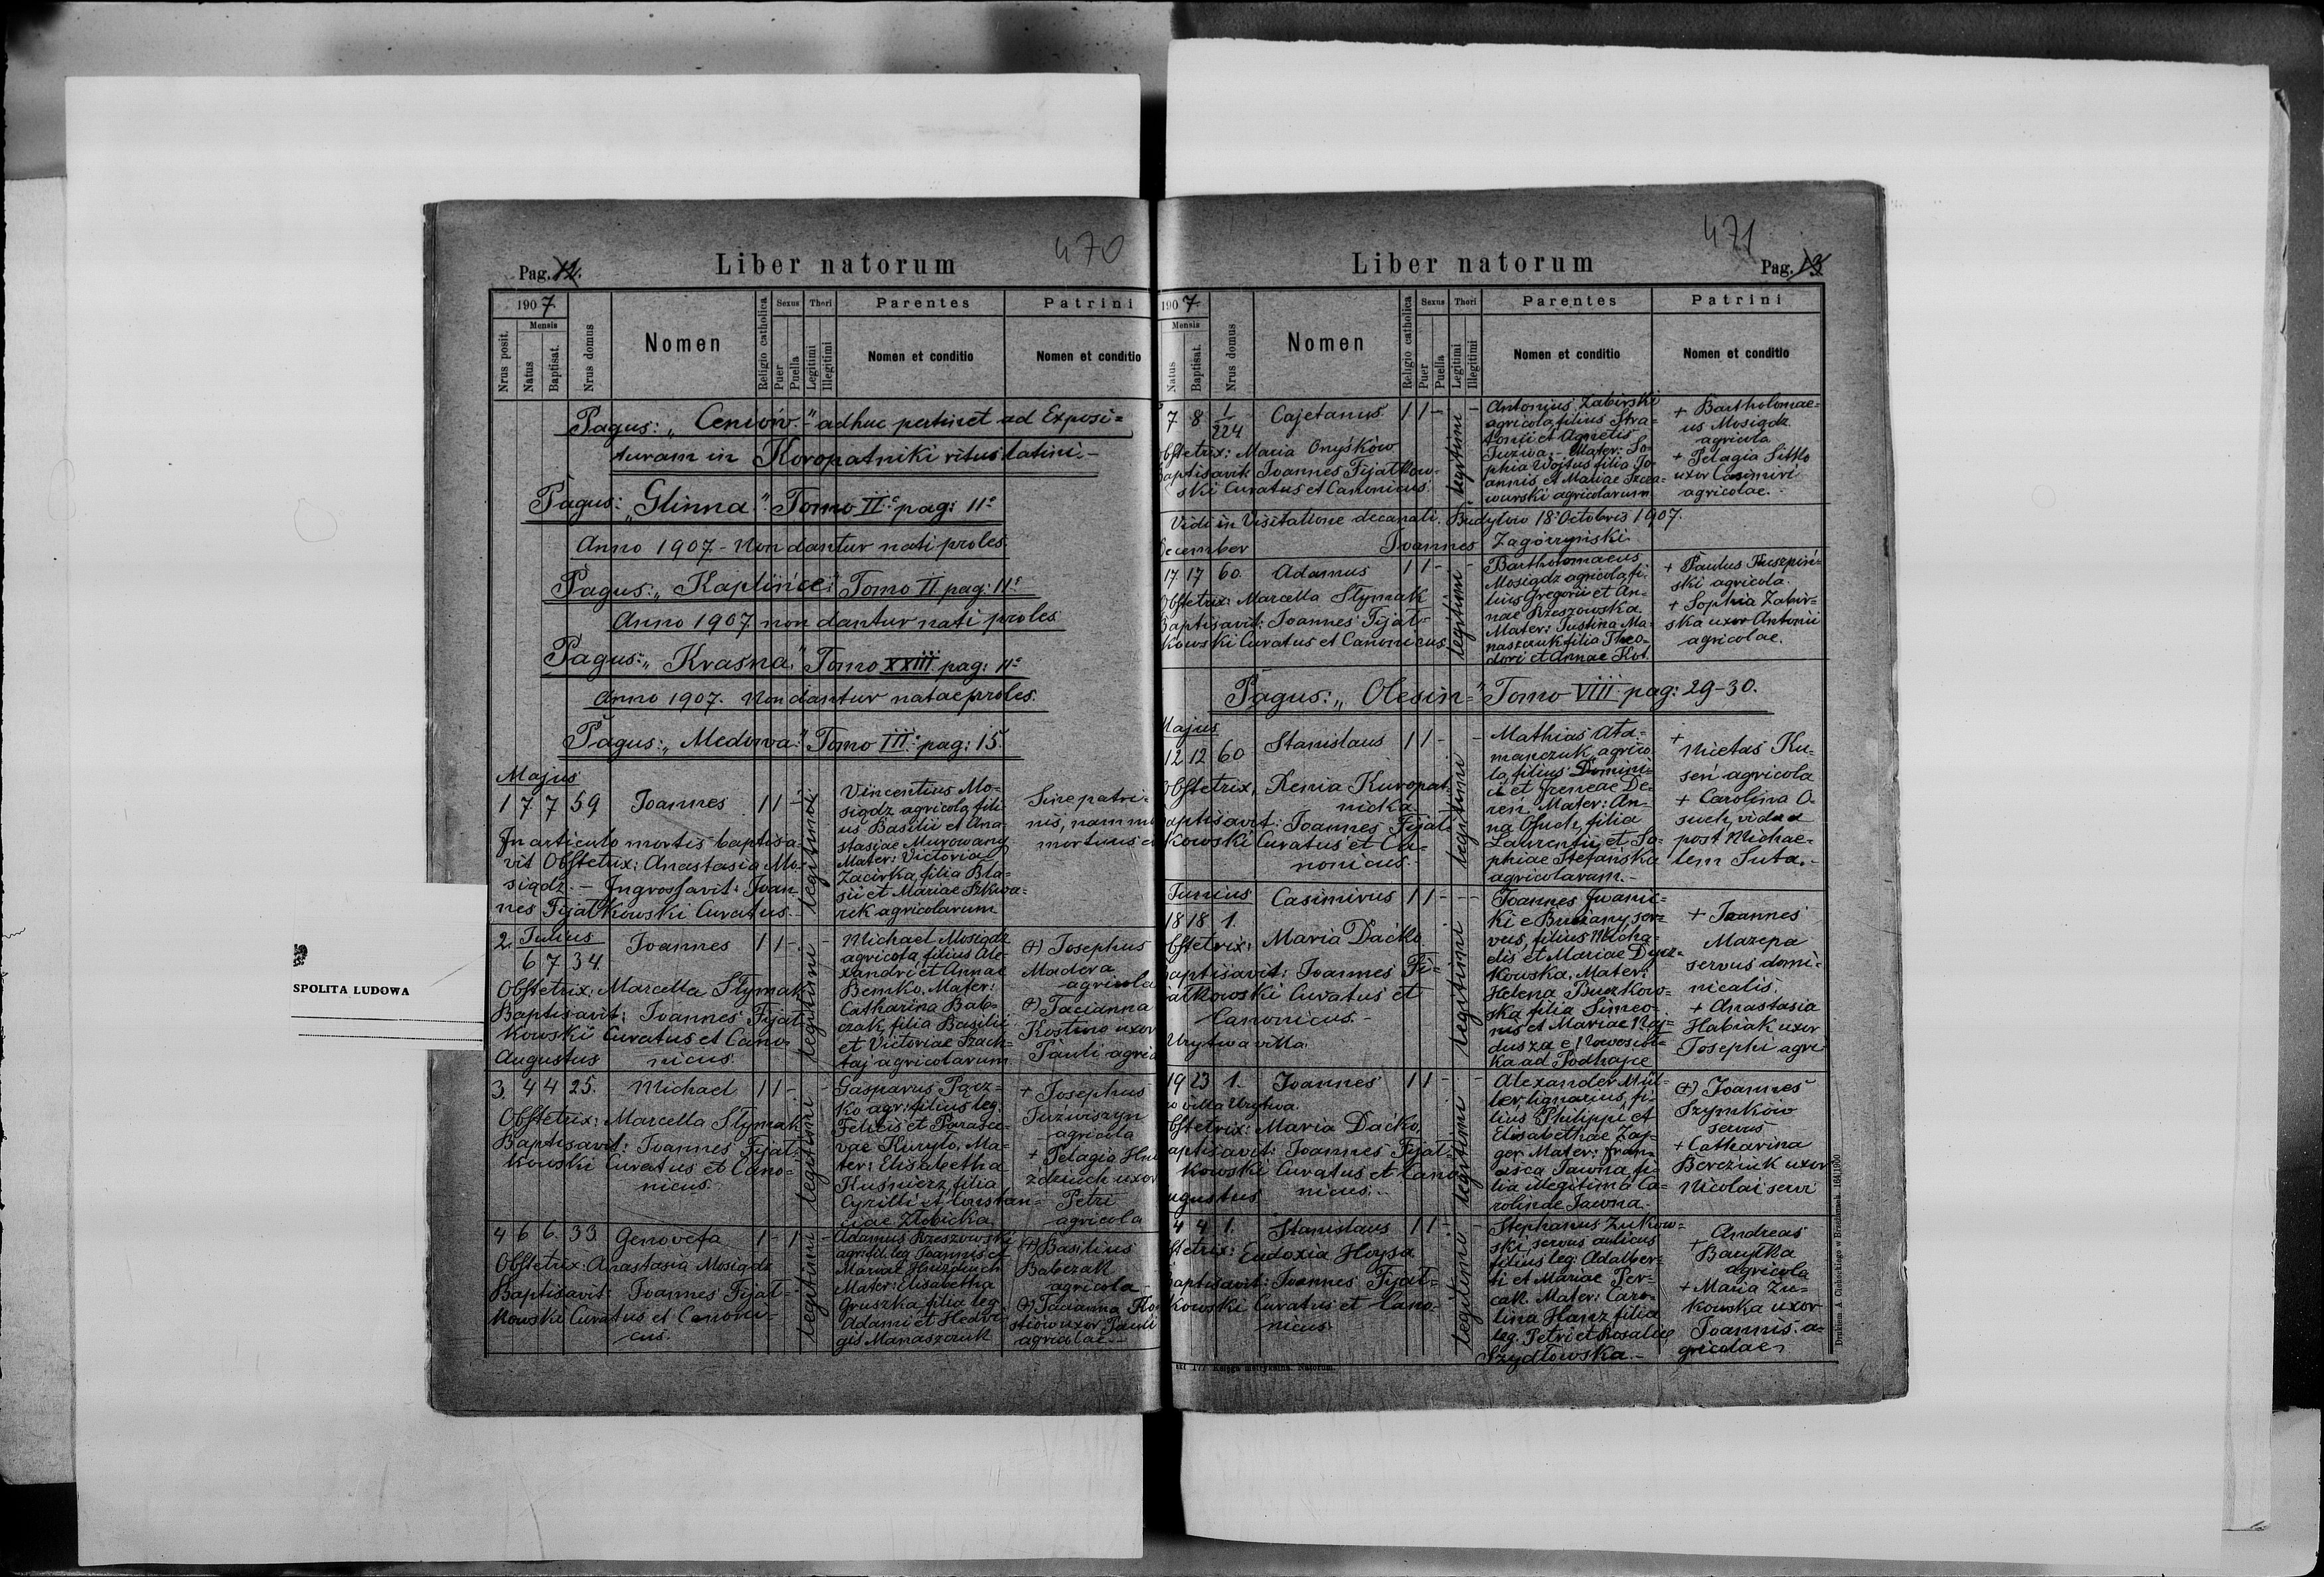 SPOLITA LUDOWA
470
Pag. 12.
Liber natorum
1907
Mensis
Nrus posit.
Natus
Baptisat.
Nrus domus
Nomen
Religio catholica
Sexus
Puer
Puella
Thori
Legitimi
Illegitimi
Parentes
Nomen et conditio
Patrini
Nomen et conditio
Pagus: „Ceniów" - adhuc pertinet ad Exposi=
turam in Koropatniki ritus latini.-
Pagus: „Glinna" Tomo II° pag: 11°
Anno 1907 - Non dantur nati proles.
Pagus: „Kaplińce" Tomo II pag: 11°
Anno 1907 non dantur nati proles
Pagus: „Krasna" Tomo XXIII pag: 11°
Anno 1907. Non dantur natae proles.
Pagus: „Medowa" Tomo III° pag: 15.
Majus
1 7 7 59 Joannes 1 1 -
In articulo mortis baptisa=
vit Obstetrix: Anastasia Mo=
sigdz. - Ingrossavit: Joan=
nes Fijałkowski Curatus.-
legitimi
Vincentius Mo=
sigdz agricola, fili=
us Basilii et Ana=
stasiae Murowany
Mater: Victoria
Zacirka, filia Bla=
sii et Mariae Szkwa=
rek agricolarum
Sine patri=
nis, nam
mortuus
2. Julius
6 7 34. Joannes 1 1 - -
Obstetrix: Marcella Slymak
Baptisavit: Joannes Fijał=
kowski Curatus et Cano=
nicus.
legitimi
Michael Mosigdz
agricola, filius Ale=
xandri et Annae
Bemko. Mater:
Catharina Bab=
czak filia Basilii
et Victoriae Szack=
taj agricolarum
(+) Josephus
Madera
agricola
(+) Tacianna
Kostino uxor
Pauli
Augustus
3. 4 4 25. Michael 1 1 - -
Obstetrix: Marcella Slymak
Baptisavit: Joannes Fijał=
kowski Curatus et Cano=
nicus.
legitimi
Gasparus Pącz=
ko agr: filius leg.
Felicis et Parasce=
vae Kuryło, Ma=
ter: Elisabetha
Kuśnierz, filia
Cyrilli et Constan=
ciae Złobicka
+ Josephus
Juźwiszyn
agricola
+ Pelagia
uxor
Petri
agricola
4 6 6. 33 Genovefa 1 - 1 -
Obstetrix: Anastasia Mosigdz
Baptisavit: Joannes Fijał=
kowski Curatus et Canoni=
cus.
legitimi
Adamus Rzeszowski
agr: fil. leg. Joannis et
Mariae Hnizdiuch
Mater: Elisabetha
Gruszka, filia leg.
Adami et Hedvi=
gis Manaszczuk
(+) Basilius
Babczak
agricola
(+) Tacianna
uxor Pauli
agricolae.-
471
Liber natorum
Pag. 13
1907
Mensis
Natus
Baptisat.
Nrus domus
Nomen
Religio catholica
Sexus
Puer
Puella
Thori
Legitimi
Illegitimi
Parentes
Nomen et conditio
Patrini
Nomen et conditio
7 8 1/224 Cajetanus 1 1 - -
Obstetrix: Maria Onyśków
Baptisavit: Joannes Fijałkow=
ski Curatus et Canonicus.
legitimi
Antonius Zabirski
agricola, filius Stra=
tonii et Agnetis
Juźwa. - Mater: So=
phia Wojtus filia Jo=
annis et Mariae
agricolarum
+ Bartholomae=
us Mosigdz
agricola
+ Pelagia Sittko
uxor Casimiri
agricolae.-
Vidi in Visitatione decanali. Budyłów 18 Octobris 1907.
Joannes Zagórzynski
December
17 17 60. Adamus 1 1 - -
Obstetrix: Marcella Slymak
Baptisavit: Joannes Fijał=
kowski Curatus et Canonicus.
legitimi
Bartholomaeus
Mosigdz agricola, fi=
lius Gregorii et An=
nae Rzeszowska.
Mater: Justina Ma=
naszczuk filia Theo=
dori et Annae Kot.
+ Paulus
ski agricola.
+ Sophia Zabir=
ska uxor Antonii
agricolae.
Pagus: „Olesin=" Tomo VIII pag: 29-30.
Majus
12 12 60 Stanislaus 1 1 - -
Obstetrix, Xenia Kuropat=
nicka.
Baptisavit: Joannes Fijał=
kowski Curatus et Ca=
nonicus.-
legitimi
Mathias Ata=
manczuk, agrico=
la, filius Domini=
ci et Ireneae De=
reń. Mater: An=
na Osuch, filia
Laurentii et So=
phiae Stefańska
agricolarum.-
+
Nicetas Ku=
seń agricola
+ Carolina O=
such, vidua
post Michae=
lem Suta.-
Junius Casimirus 1 1 - -
18 18 1.
Obstetrix: Maria Daćko
Baptisavit: Joannes Fi=
jałkowski Curatus et
Canonicus.-
Urytwa villa.
legitimi
Joannes Iwanic=
ki e Buszany, ser=
vus, filius Micha=
elis et Mariae Dycz=
kowska, Mater:
Helena Buczkow=
ska filia Simeo=
nis et Mariae Naj=
dusza e Nowosiół=
ka ad Podhajce
+ Joannes
Mazepa
servus domi=
nicalis.
+ Anastasia
Habiak uxor
Josephi agri
19 23 1. Joannes 1 1 - -
villa Urytwa.
Obstetrix: Maria Daćko,
Baptisavit: Joannes Fijał=
kowski Curatus et Cano=
nicus.-
legitimi
Alexander Mül=
ler lignarius, fi=
lius Philippi et
Elisabethae Zaj=
ger Mater: Fran=
cisca Jawna, fi=
lia illegitima Ca=
rolinae Jawna.
(+) Joannes
Szymków
servus
+ Catharina
Bereziuk uxor
Nicolai servi
Augustus
4 4 1. Stanislaus 1 1 - -
Obstetrix: Eudoxia Hoysa
Baptisavit: Joannes Fijał=
kowski Curatus et Cano=
nicus.
legitimi
Stephanus Żukow=
ski, servus aulicus
filius leg. Adalber=
ti et Mariae Per=
cak. Mater: Caro=
lina Hanz, filia
leg. Petri et Rosaliae
Szydłowska.-
+ Andreas
Baryłka
agricola
+ Maria Zu=
kowska uxor
Joannis a=
gricolae
Księga metrykalna. Natorum.